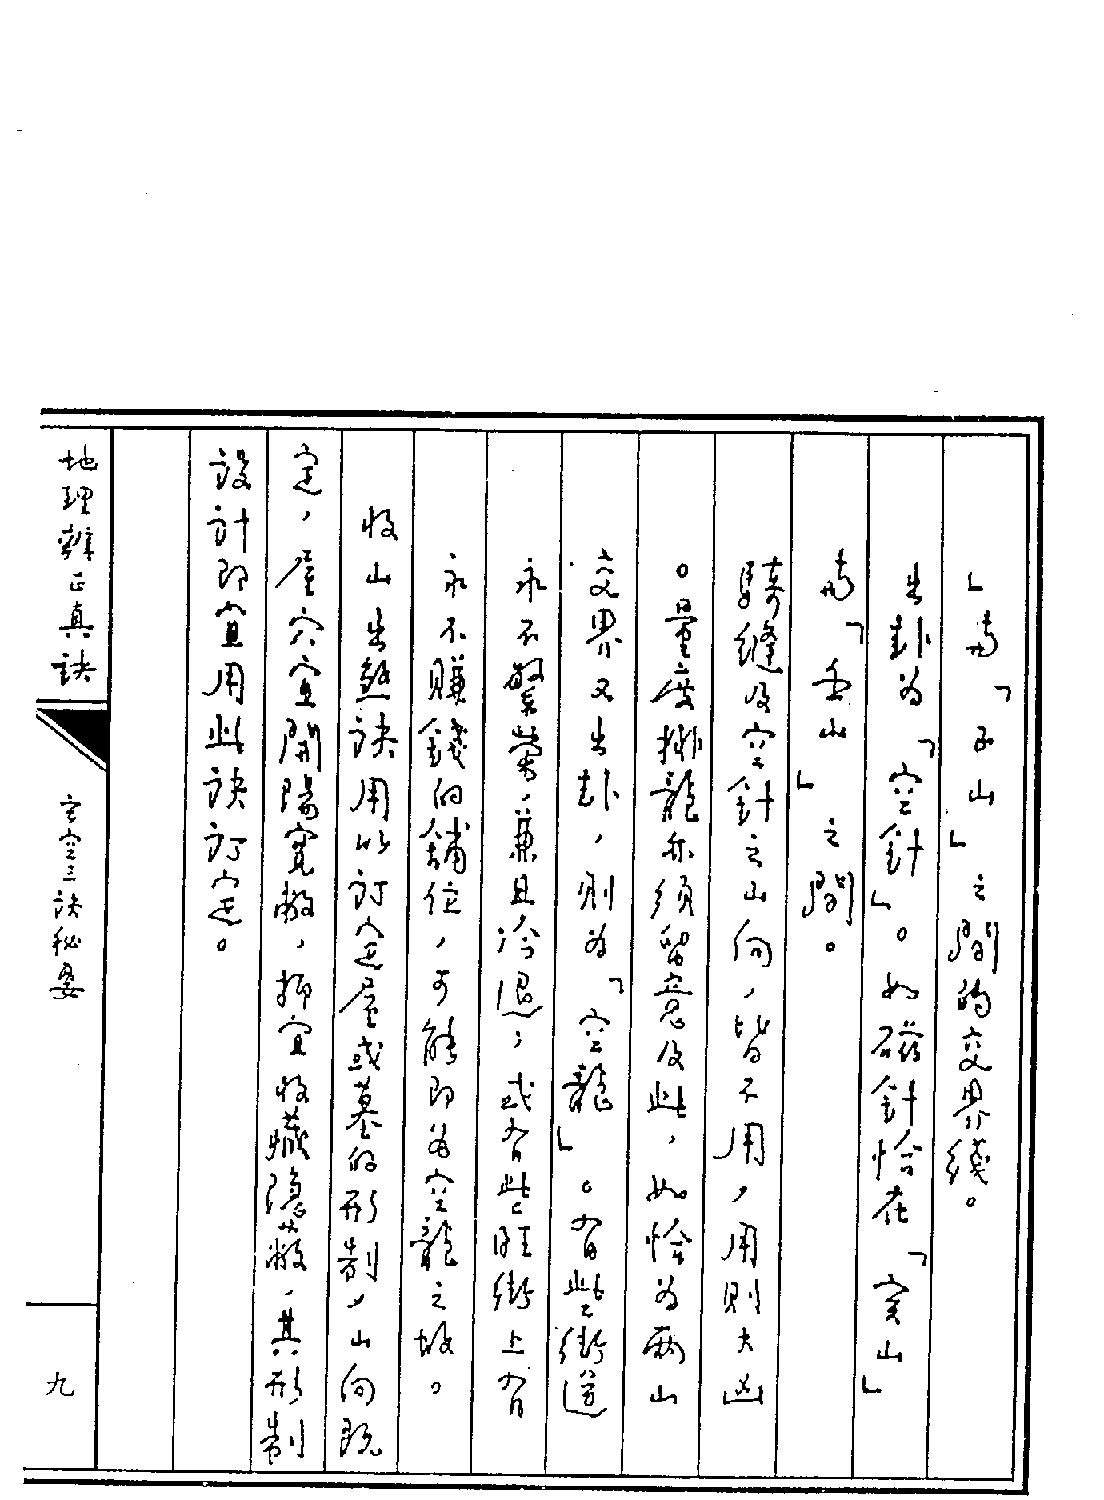 」與「丑山」之間的交界綫。
出卦為「空針」。如磁針恰在「寅山」
與「艮山」之間。
騎縫及空針之山向，皆不用，用則大凶
。量度排龍亦須留意及此，如恰為兩山
交界又出卦，則為「空龍」。有些街道
永不繁榮，兼且冷退，或有些旺街上有
永不賺錢的舖位，可能即為空龍之故。
收山出煞訣用以訂定屋或墓的形制，山向既
定，屋穴宜開陽寬敞，抑宜收藏隱蔽，其形制
設計即宜用此訣訂定。
地理辨正真訣
玄空三訣秘要
九